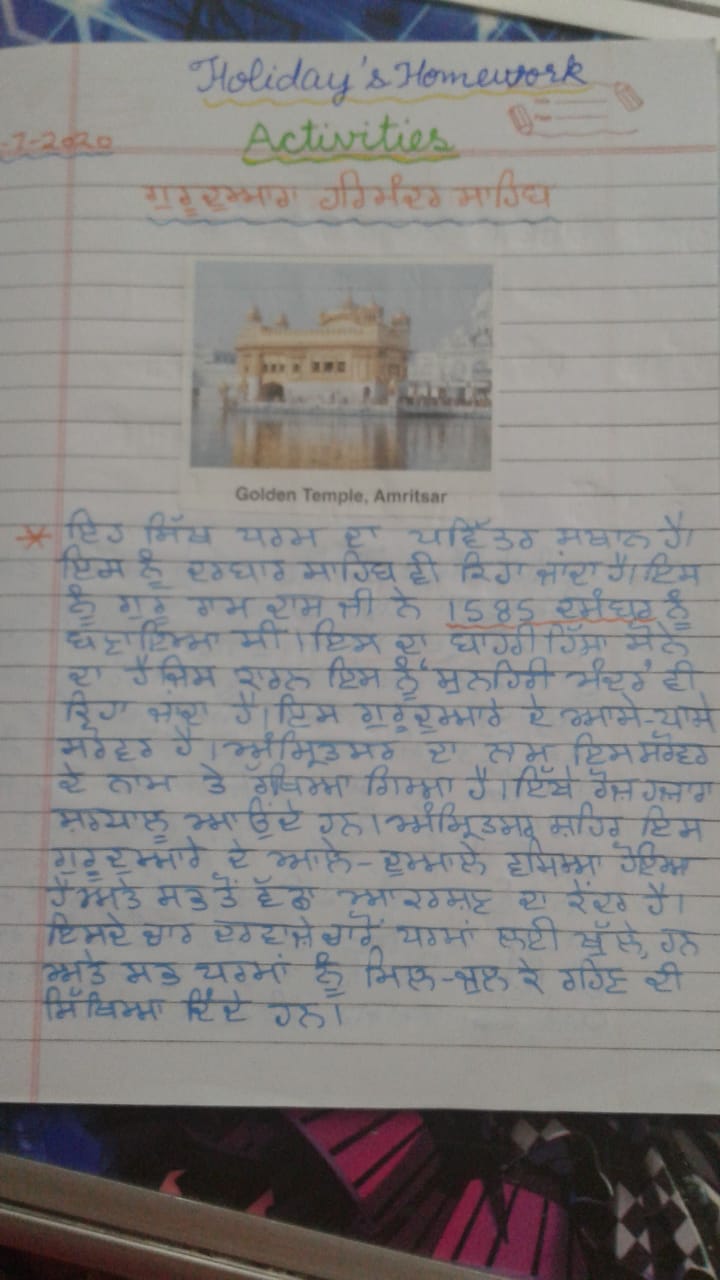 Holiday's Homework
-7-2020
Activities
ਗੁਰੂਦੁਆਰਾ ਹਰਿਮੰਦਰ ਸਾਹਿਬ
Golden Temple, Amritsar
* ਇਹ ਸਿੱਖ ਧਰਮ ਦਾ ਪਵਿੱਤਰ ਸਥਾਨ ਹੈ।
ਇਸ ਨੂੰ ਦਰਬਾਰ ਸਾਹਿਬ ਵੀ ਕਿਹਾ ਜਾਂਦਾ ਹੈ। ਇਸ
ਨੂੰ ਗੁਰੂ ਰਾਮ ਦਾਸ ਜੀ ਨੇ 1585 ਦਸੰਬਰ ਨੂੰ
ਬਣਾਇਆ ਸੀ। ਇਸ ਦਾ ਬਾਹਰੀ ਹਿੱਸਾ ਸੋਨੇ
ਦਾ ਹੈ ਜਿਸ ਕਾਰਨ ਇਸ ਨੂੰ 'ਸੁਨਹਿਰੀ ਮੰਦਰ' ਵੀ
ਕਿਹਾ ਜਾਂਦਾ ਹੈ। ਇਸ ਗੁਰੂਦੁਆਰੇ ਦੇ ਆਸੇ-ਪਾਸੇ
ਸਰੋਵਰ ਹੈ। ਅੰਮ੍ਰਿਤਸਰ ਦਾ ਨਾਮ ਇਸ ਸਰੋਵਰ
ਦੇ ਨਾਮ ਤੇ ਰੱਖਿਆ ਗਿਆ ਹੈ। ਇੱਥੇ ਰੋਜ਼ ਹਜ਼ਾਰਾਂ
ਸ਼ਰਧਾਲੂ ਆਉਂਦੇ ਹਨ। ਅੰਮ੍ਰਿਤਸਰ ਸ਼ਹਿਰ ਇਸ
ਗੁਰੂਦੁਆਰੇ ਦੇ ਆਲੇ-ਦੁਆਲੇ ਵਸਿਆ ਹੋਇਆ
ਹੈ ਅਤੇ ਸਭ ਤੋਂ ਵੱਡਾ ਆਕਰਸ਼ਣ ਦਾ ਕੇਂਦਰ ਹੈ।
ਇਸਦੇ ਚਾਰ ਦਰਵਾਜ਼ੇ ਚਾਰੋਂ ਧਰਮਾਂ ਲਈ ਖੁੱਲੇ ਹਨ
ਅਤੇ ਸਭ ਧਰਮਾਂ ਨੂੰ ਮਿਲ-ਜੁਲ ਕੇ ਰਹਿਣ ਦੀ
ਸਿੱਖਿਆ ਦਿੰਦੇ ਹਨ।